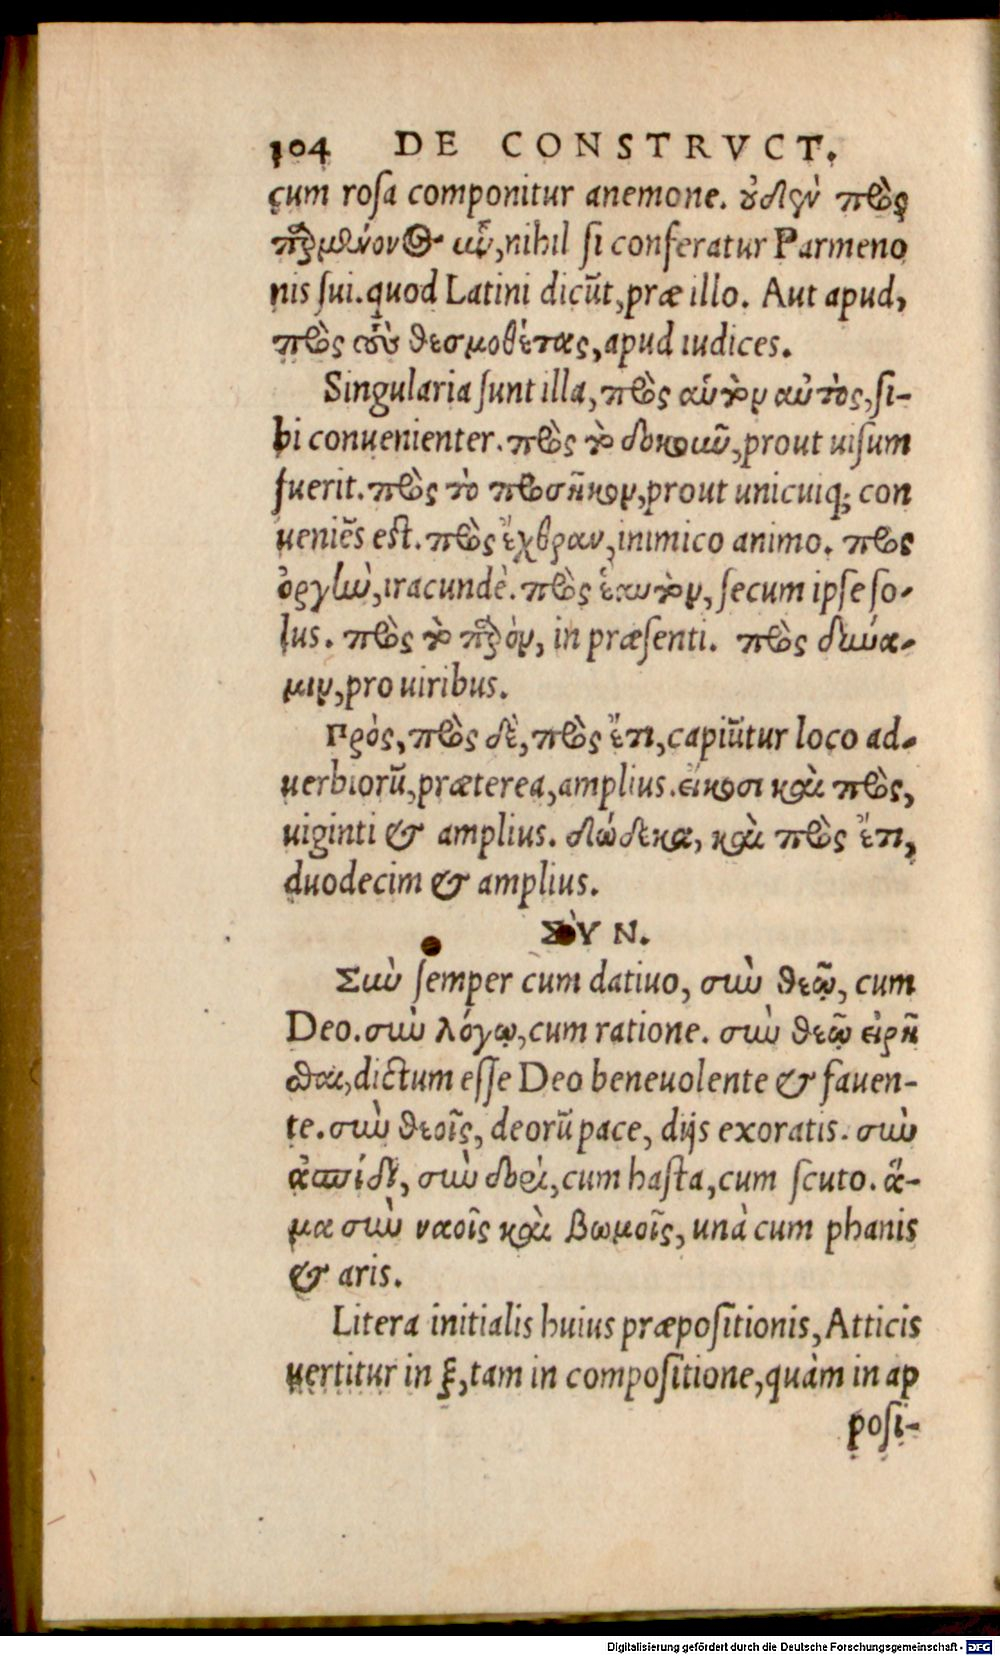 104 DE CONSTRVCT.
cum rosa componitur anemone. οὐδὲν πρὸς
παρμένονος κοῦ, nihil si conferatur Parmeno
nis sui. quod Latini dicũt, præ illo. Aut apud,
πρὸς τοὺς θεσμοθέτας, apud iudices.
Singularia sunt illa, πρὸς αὑτὸν αὐτὸς, si-
bi conuenienter. πρὸς τὸ δοκοῦν, prout uisum
fuerit. πρὸς τὸ προσῆκον, prout unicuiq; con
ueniẽs est. πρὸς ἔχθραν, inimico animo. πρὸς
ὀργὴν, iracundè. πρὸς ἑαυτὸν, secum ipse so-
lus. πρὸς τὸ παρόν, in præsenti. πρὸς δύνα-
μιν, pro uiribus.
Πρὸς, πρὸς δὲ, πρὸς ἔτι, capiũtur loco ad-
uerbiorũ, præterea, amplius. εἴκοσι καὶ πρὸς,
uiginti & amplius. δώδεκα, καὶ πρὸς ἔτι,
duodecim & amplius.
ΣῪΝ.
Σὺν semper cum datiuo, σὺν θεῷ, cum
Deo. σὺν λόγῳ, cum ratione. σὺν θεῷ εἰρῆ
σθαι, dictum esse Deo beneuolente & fauen-
te. σὺν θεοῖς, deorũ pace, dijs exoratis. σὺν
ἀσπίδι, σὺν δορὶ, cum hasta, cum scuto. ἅ-
μα σὺν ναοῖς καὶ βωμοῖς, unà cum phanis
& aris.
Litera initialis huius præpositionis, Atticis
uertitur in ξ, tam in compositione, quàm in ap
posi-
Digitalisierung gefördert durch die Deutsche Forschungsgemeinschaft - DFG